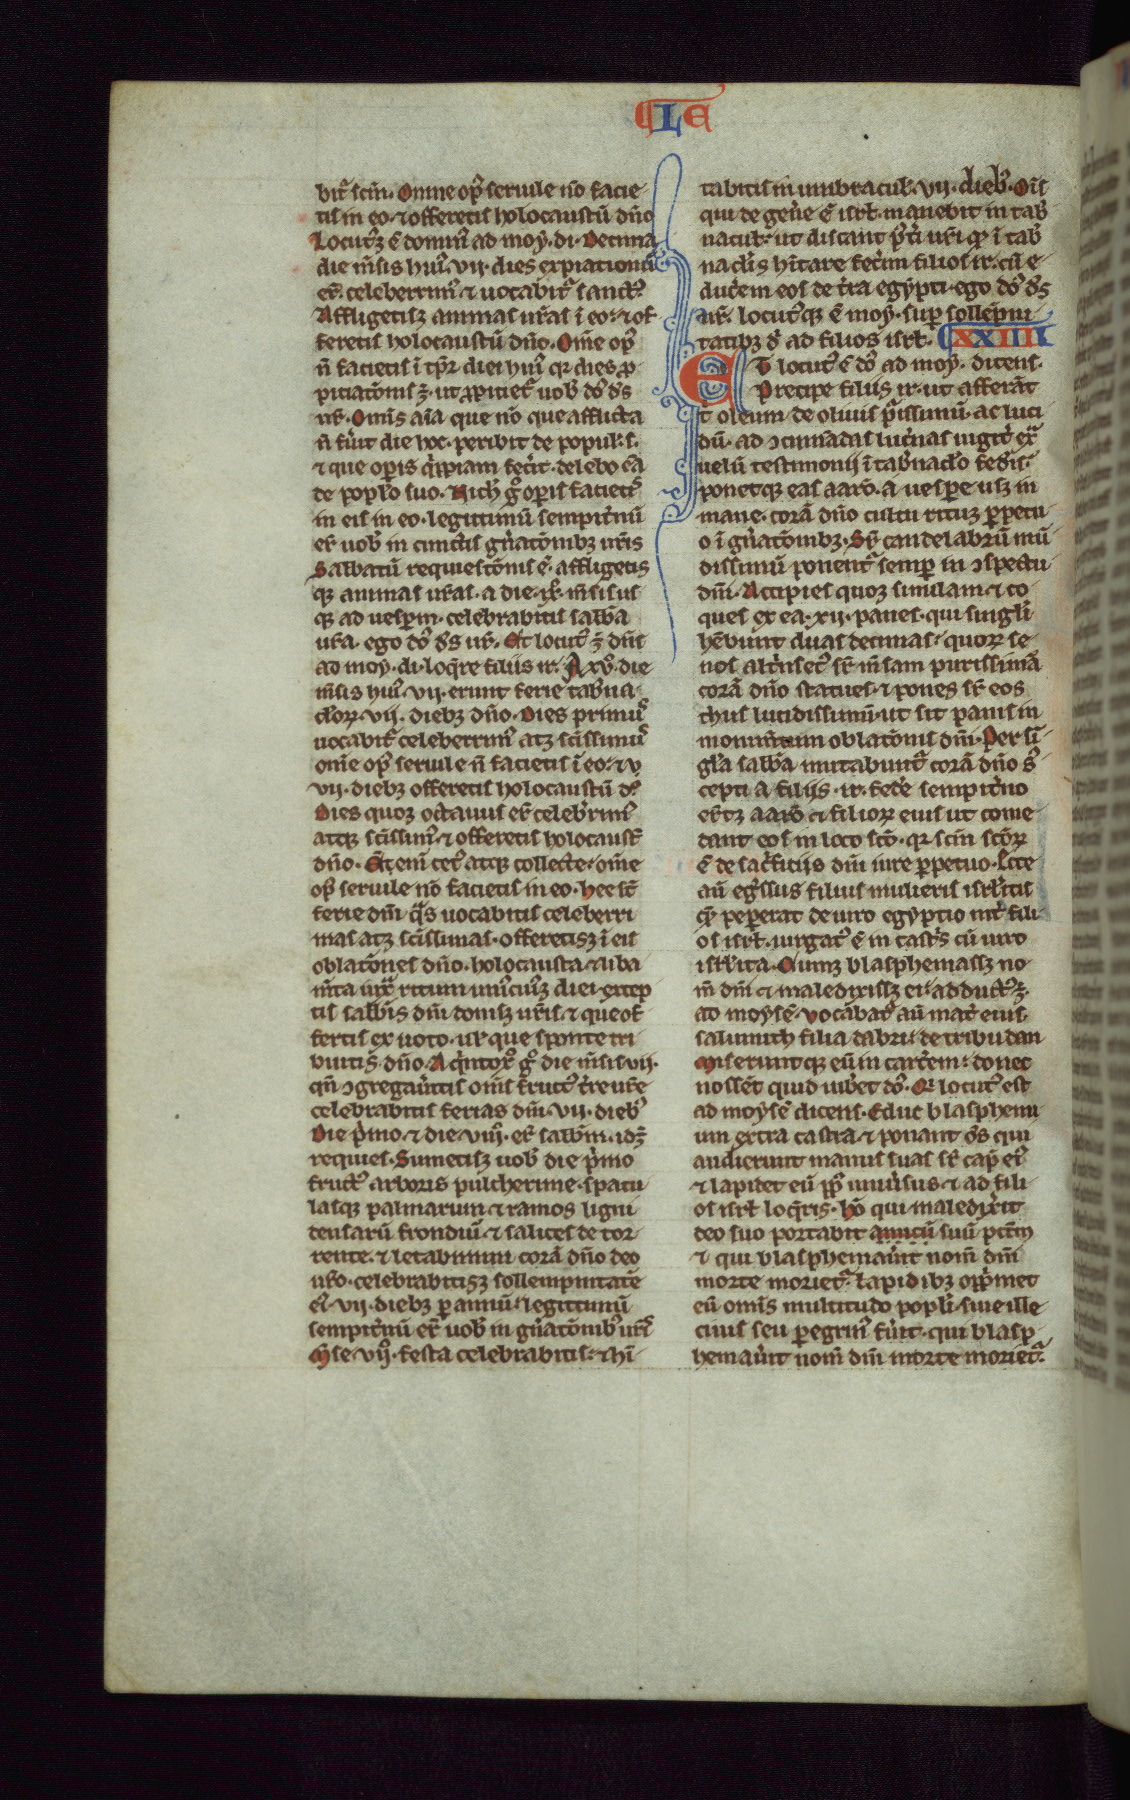 LE
bit̃ scm̃. Omne op̾ seruile nõ facie
tis in eo. ⁊ offeretis holocaustũ dño
Locutꝰ ẽ dominꝰ ad moy. di. Decima
die m̃sis huiꝰ. vij. dies expiationũ
er̃. celeberrimꝰ ⁊ uocabit̃ sanctꝰ.
Affligetisqꝫ animas ur̃as ĩ eo. ⁊ of
feretis holocaustũ dño. Om̃e op̾
ñ facietis ĩ tp̃r diei huiꝰ qr dies ꝓ
piciatõnis ẽ. ut ꝓpiciet̃ uob̃ dõs d̃s
ur̃. Om̃is aĩa que nõ que afflicta
ñ fũit die hoc. peribit de popul. s.
⁊ que oꝑis q̃ppiam fec̃it. delebo eã
de popl̃o suo. Nich̃ g̊ oꝑis faciet̃
in eis in eo. legitimũ sempit̃nũ
er̃ uob̃ in cunctis gñatõnibꝫ ur̃is
Sabbatũ requiestõnis ẽ. affligetis
qꝫ animas ur̃as. a die. ix. m̃sis us
qꝫ ad uesꝑm. celebrabitis sabb̃a
ur̃a. ego dõs d̃s ur̃. Et locutꝰ ẽ dñs
ad moy. di. loq̃re filiis ir̃. A xv. die
m̃sis huiꝰ. vij. erunt ferie tab̃na
cl̃oꝝ. vij. diebꝫ dño. Dies primꝰ
uocabit̃ celeberrimꝰ atqꝫ sc̃issimꝰ
om̃e op̾ seruile ñ facietis ĩ eo. ⁊ v
vij. diebꝫ offeretis holocaustũ d.
Dies quoqꝫ octauus er̃ celeb̃rimꝰ
atqꝫ sc̃issimꝰ ⁊ offeretis holocaust̃
dño. Est eni cetꝰ atqꝫ collecte. om̃e
op̾ seruile nõ facietis in eo. hee st̃
ferie dñi q̃s uocabitis celeberri
mas atqꝫ sc̃issimas. offeretisqꝫ ĩ eis
oblatõnes dño. holocausta ⁊ liba
m̃ta iuxͣ ritum uniꝰcuiꝰqꝫ diei. excep
tis sabb̃is dñi donisqꝫ ur̃is. ⁊ que of
fertis ex uoto. ul̃ que sponte tri
buitis dño. A q̃ntoxͦ g̊ die m̃sis. vij.
qñ ɔgregau̾itis om̃s fructꝰ t̃re ur̃e
celebrabitis ferias dñi. vij. dieb̃
Die p̾mo. ⁊ die. viij. er̃ sabb̃m. id ẽ
requies. Sumetisqꝫ uob̃ die p̾mo
fructꝰ arboris pulcherime. spatu
lasqꝫ palmarum ⁊ ramos ligni
densarũ frondiũ. ⁊ salices de tor
rente. ⁊ letabimini corã dño deo
ur̃o. celebrabitisqꝫ sollempnitatẽ
eiꝰ. vij. diebꝫ ꝑ annũ. legittimũ
sempit̃nũ er̃ uob̃ in gñatõnib̃ ur̃is
M̃se. vijͦ. festa celebrabitis. ⁊ hĩ
tabitis in umbracul̃. vij. dieb̃. Om̃s
qui de geñe ẽ isrl̃. manebit in tab̾
nacul̃. ut discant p̾t̃i ur̃i qꝫ ĩ tab̾
nacl̃is hĩtare fec̃im filios ir̃. cũ e
duc̃em eos de t̃ra egypti. ego dõs d̃s
ur̃. locutꝰqꝫ ẽ moy. suꝑ sollẽpni
tatibꝫ d̃i ad filios isrl̃. XXIIII
ET locutꝰ ẽ dõs ad moy. dicens.
Precipe filiis ir̃. ut afferãt
t̃ oleum. de oliuis p̾issimũ. ac luci
dũ. ad ɔcinnadas luc̃nas iugit̾ exͣ
uelũ testimonij ĩ tab̾nacl̃o fed̾is.
ponetqꝫ eas aarõ. a uesꝑe usqꝫ in
mane. corã dño cultu rituqꝫ ꝑpetu
o ĩ gñatõnibꝫ. Sr̃ candelabrũ mũ
dissimũ ponent̃ semꝑ in ɔspectu
dñi. Accipies quoqꝫ similam. ⁊ co
ques ex ea. xij. panes. qui singl̃i
hẽbunt duas decimas. quoꝝ se
nos alt̾insecꝰ sr̃ m̃sam purissimã
corã dño statues. ⁊ pones sr̃ eos
thus lucidissimũ. ut sit panis in
monim̃tum oblatõnis dñi. Per sĩ
gl̃a sabb̃a mutabunt̃ corã dño s̾
cepti a filijs. ir̃. fed̾e sempit̾no
er̃tqꝫ aarõ ⁊ filioꝝ eius ut come
dant eos in loco sc̃o. qr sc̃m sc̃oꝝ
ẽ de sac̾ficijs dñi iure ꝑpetuo. Ecce
aũ eg̾ssus filius mulieris isrl̃itis
q̃ peꝑerat de uiro egyptio int̾ fili
os isrl̃. iurgatꝰ ẽ in cast̾s cũ uiro
isrl̃ita. Cumqꝫ blasphemassꝫ no
m̃ dñi ⁊ maledixissꝫ ei. adductꝰ ẽ
ad moysẽ. vocabat̃ aũ mat̾ eius
salumith filia dabri. de tribu dan
Miseruntqꝫ eũ in carc̾em. donec
nossẽt quid iub̾et dõs. Qr locutꝰ est
ad moysẽ dicens. Educ blasphemi
um extra castra. ⁊ ponant õs qui
audierunt manus suas sr̃ cap̃ eiꝰ
⁊ lapidet eũ pp̃s uniu̾sus. ⁊ ad fili
os isrl̃ loq̾ris. hõ qui maledix̾it
deo suo portabit annicũ suũ pctm̃
⁊ qui blasphemau̾it nom̃ dñi
morte moriet̃. Lapidibꝫ opp̾met
eũ om̃is multitudo popl̃i. siue ille
ciuis seu ꝑegrinꝰ fũit. qui blasp
hemau̾it nom̃ dñi morte moriet̃.